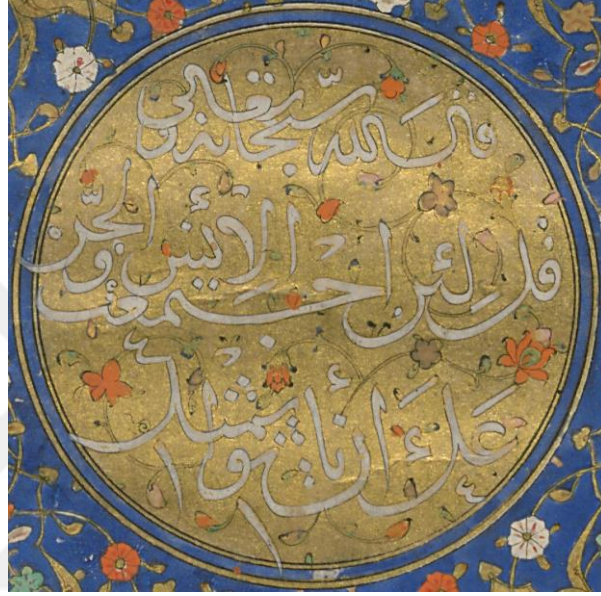 قال الله سبحانه وتعالى
قل لئن اجتمعت الإنس والجن
على أن يأتوا بمثل